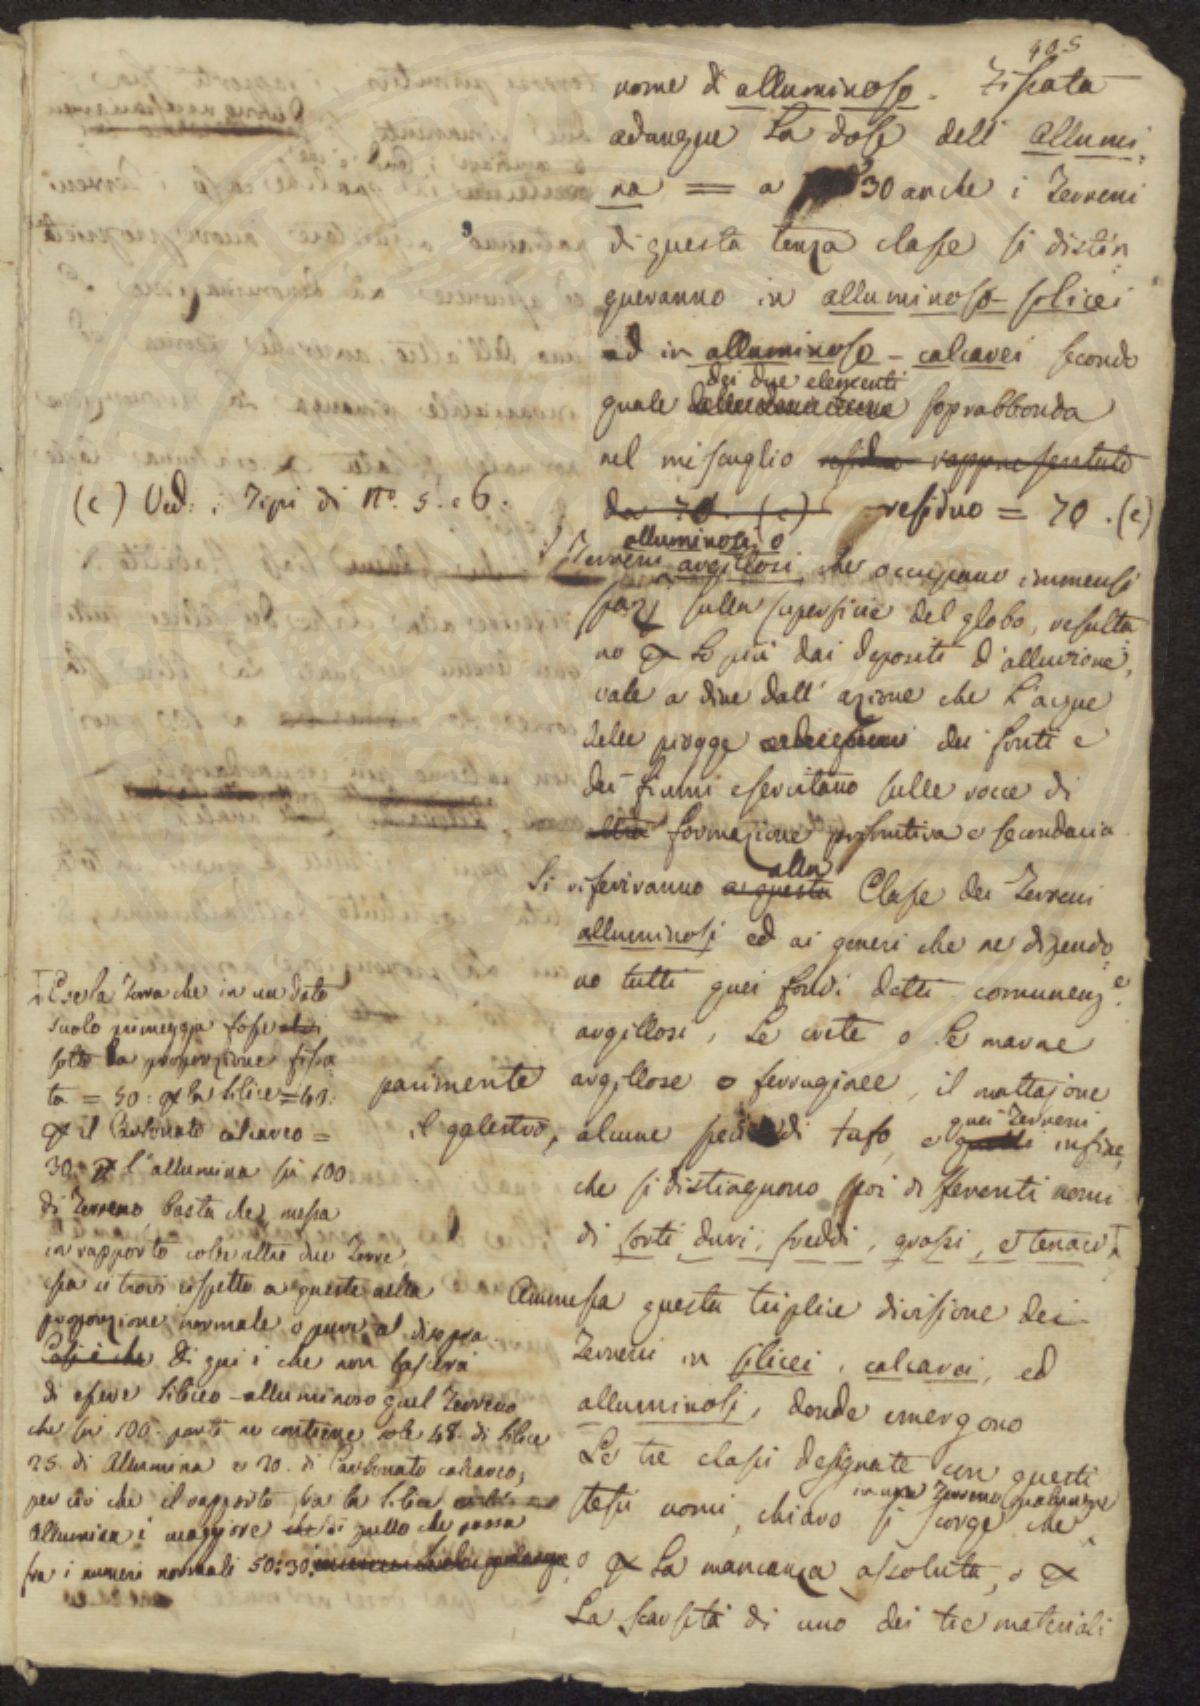 405
nome di alluminoso. Fissata
adunque la dose dell' allumi,
na = a 30 anche i Terreni
di questa terza classe si distin
gueranno in alluminoso-silicei
ed in alluminoso-calcarei secondo
dei due elementi
quale soprabbonda
nel miscuglio residuo rappresentato
da 70. (c) residuo = 70. (c)
(c) Ved: i Tipi di No. 5. e 6.
alluminosi o
I Terreni argillosi, che occupano immensi
spazj sulla superficie del globo, resulta
no p lo più dai depositi d'alluvione,
vale a dire dall' azione che l'acque
delle piogge dei fonti e
dei fiumi esercitano sulle rocce di
altra formazione primitiva e secondaria.
alla
Si riferiranno a questa Classe dei Terreni
alluminosi ed ai generi che ne dipendo
no tutti quei fondi detti comunem.e
argillosi, le crete o le marne
argillose o ferruginee, il mattajone
parimente
il galestro,
alcune specie di tufo, e
quei Terreni
quelli infine,
che si distinguono poi differenti nomi
di forti, duri, freddi, grassi, e tenaci
Ammessa questa triplice divisione dei
Terreni in silicei, calcarei, ed
alluminosi, donde emergono
le tre classi designate con questi
in un Terreno qualunque
stessi nomi, chiaro si scorge che
o p la mancanza assoluta, o p
la scarsità di uno dei tre materiali
E se la Terra che in un dato
suolo primeggia fosse
sotto la proporzione fissa
ta = 50: p la silice = 40:
p il Carbonato calcareo =
30: p l'allumina su 100
di Terreno basta che messa
in rapporto colle altre due Terre,
essa si trovi rispetto a queste nella
proporzione normale o pure al disopra.
Così è che di qui è che non lascerà
di essere siliceo-alluminoso quel Terreno
che su 100. parti ne contiene sole 48. di silice
25. di Allumina e 20. di Carbonato calcareo,
perciò che il rapporto fra la silice
allumina è maggiore di quello che passa
fra i numeri normali 50:30: